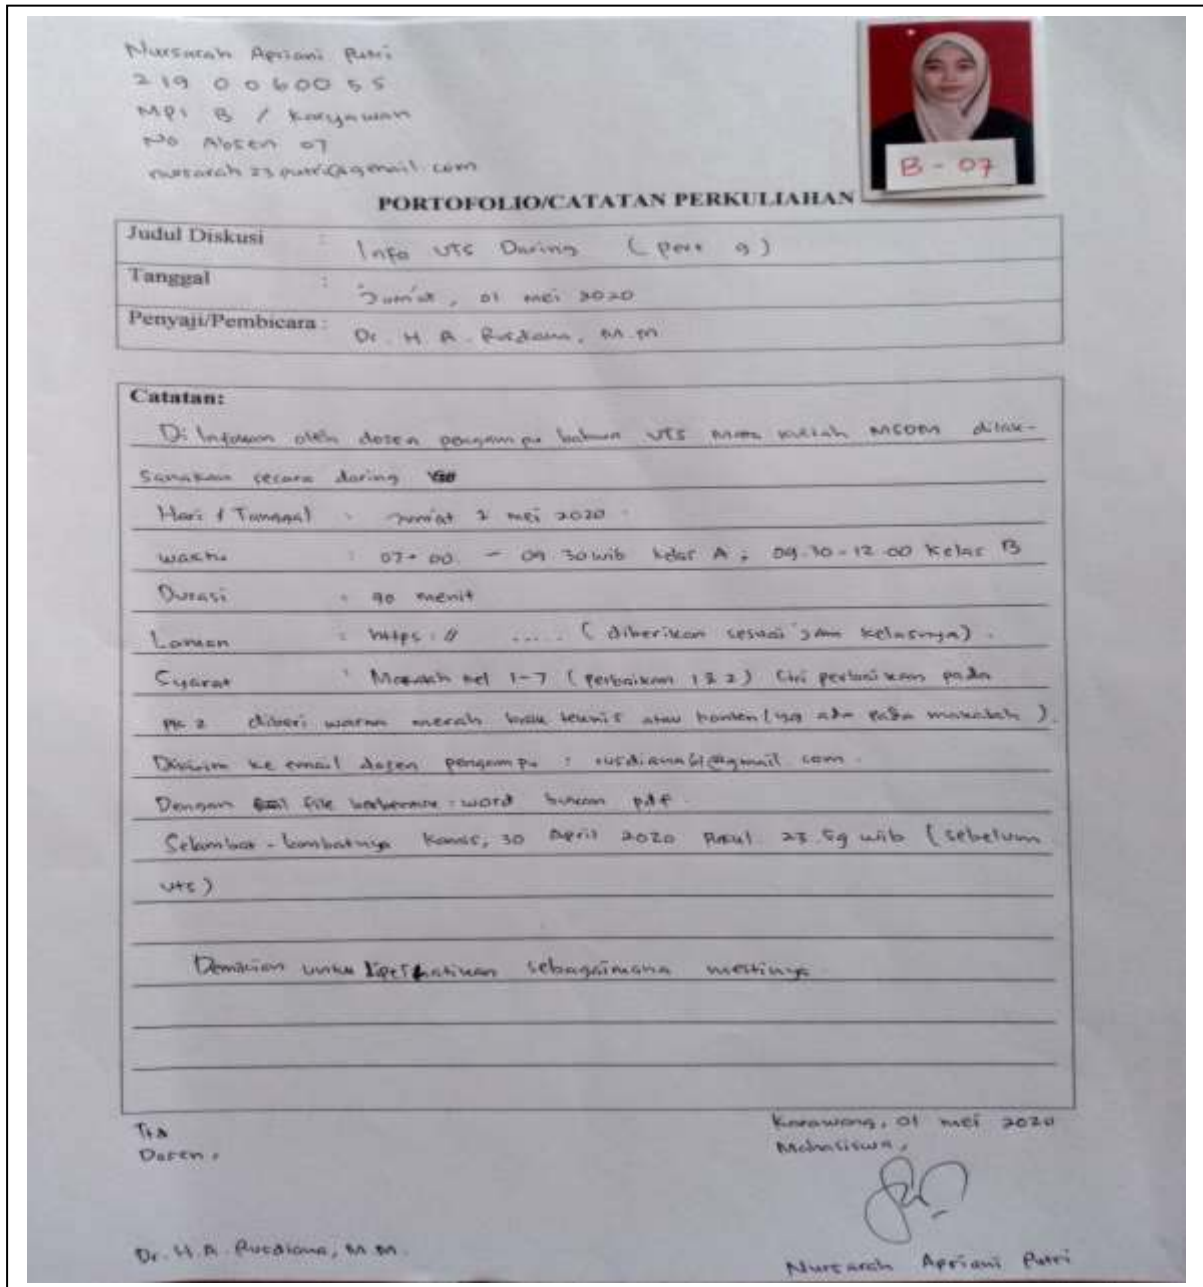 Nursarah Apriani Putri
219 0060055
MPI B / Karyawan
No Absen 07
nursarah23putri@gmail.com
B - 07
PORTOFOLIO/CATATAN PERKULIAHAN
Judul Diskusi : Info UTS Daring ( pert 9 )
Tanggal : Jum'at, 01 mei 2020
Penyaji/Pembicara : Dr. H. A. Rusdiana, M.M
Catatan:
Di Infokan oleh dosen pengampu bahwa UTS Mata kuliah MSDM dilak-
sanakan secara daring
Hari / Tanggal : Jum'at 2 mei 2020
waktu : 07.00 - 09.30 wib kelas A ; 09.30-12.00 Kelas B
Durasi : 90 menit
Laman : https:// ..... ( diberikan sesuai jam kelasnya) .
Syarat : Makalah kel 1-7 (perbaikan 1 & 2) Ciri perbaikan pada
diberi warna merah baik teknis atau konten (yg ada pada makalah ).
Dikirim ke email dosen pengampu : rusdiana61@gmail.com .
Dengan file word bukan pdf .
Selambat - lambatnya Kamis, 30 April 2020 Pukul 23.59 wib (sebelum
UTS)
Demikian untuk diperhatikan sebagaimana mestinya.
Karawang, 01 mei 2020
Ttd
Mahasiswa,
Dosen,
Dr. H. A. Rusdiana, M.M.
Nursarah Apriani Putri